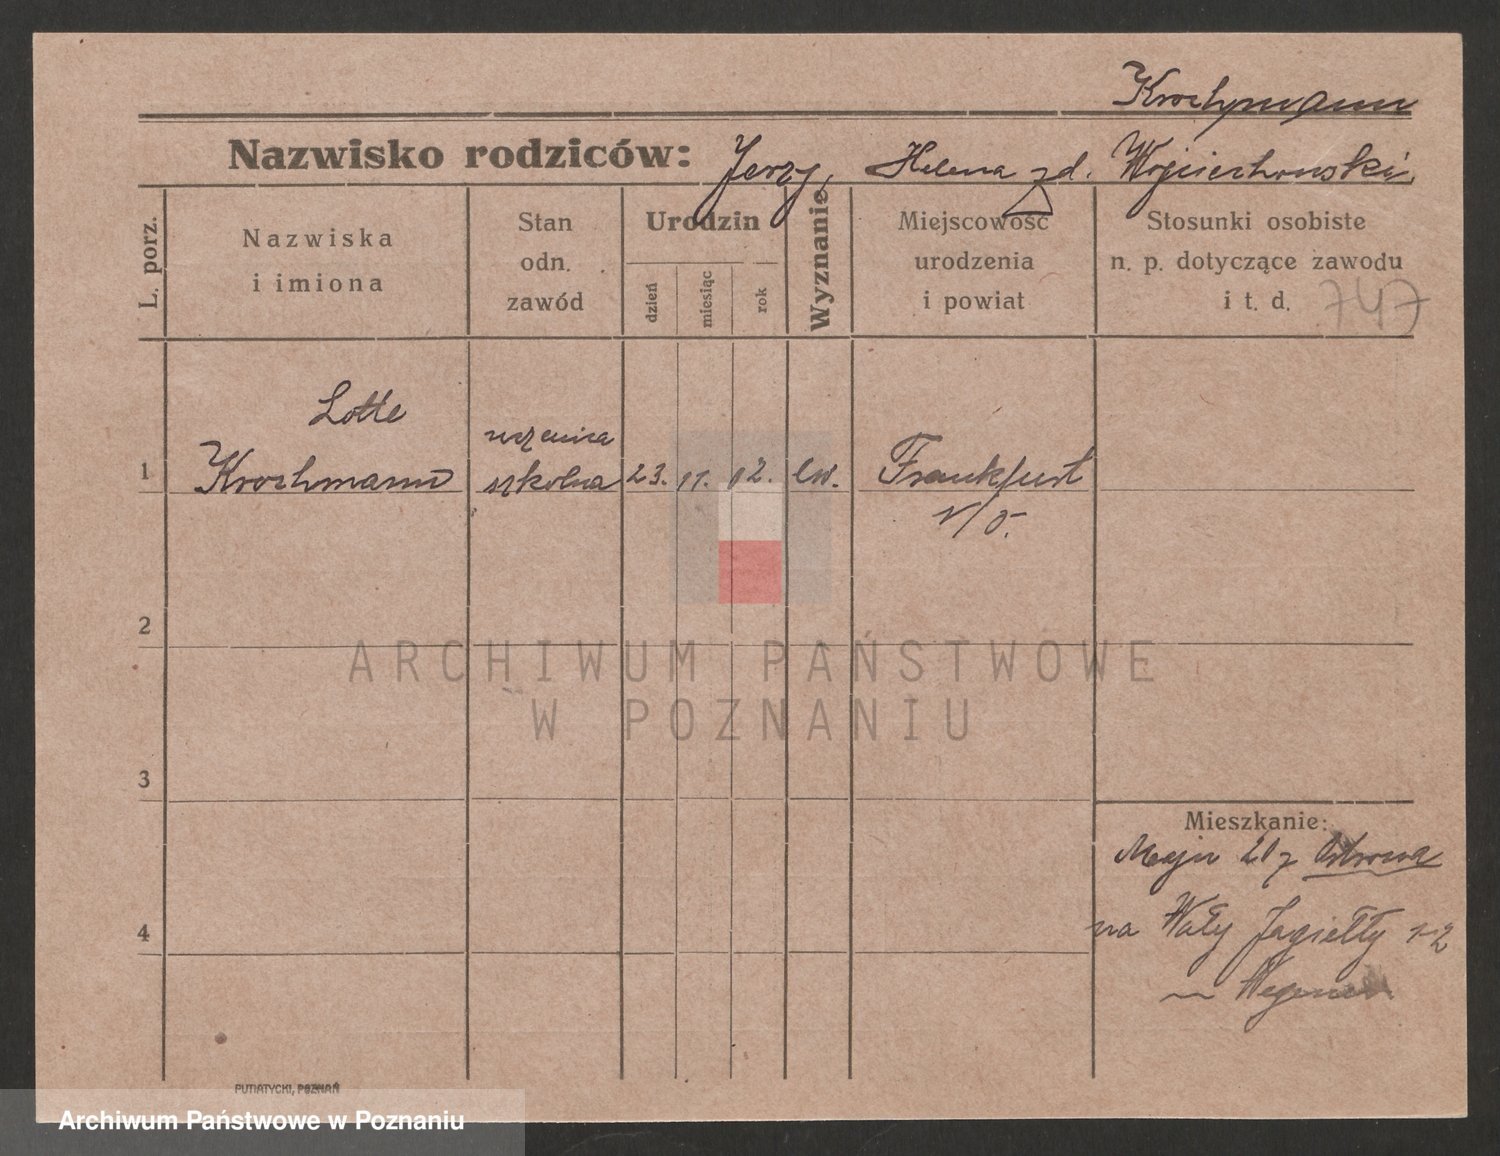 Krochmann
Nazwisko rodziców: Jerzy, Helena zd. Wojciechowski
L. porz.
Nazwiska
i imiona
Stan
odn.
zawód
Urodzin
dzień
miesiąc
rok
Wyznanie
Miejscowość
urodzenia
i powiat
Stosunki osobiste
n. p. dotyczące zawodu
i t. d.
747
Lotte
uczenica
1 Krochmann szkolna 23. 11. 12. ew. Frankfurt
n/O.
2
3
4
Mieszkanie:
21
na Wały Jagiełły 1-2
PUTIATYCKI, POZNAŃ
ARCHIWUM PAŃSTWOWE
W POZNANIU
Archiwum Państwowe w Poznaniu